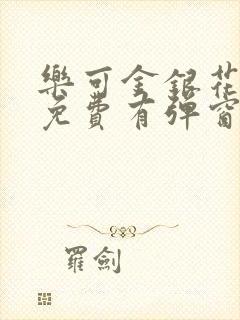 樂可金銀花
免費有彈窗
羅劍